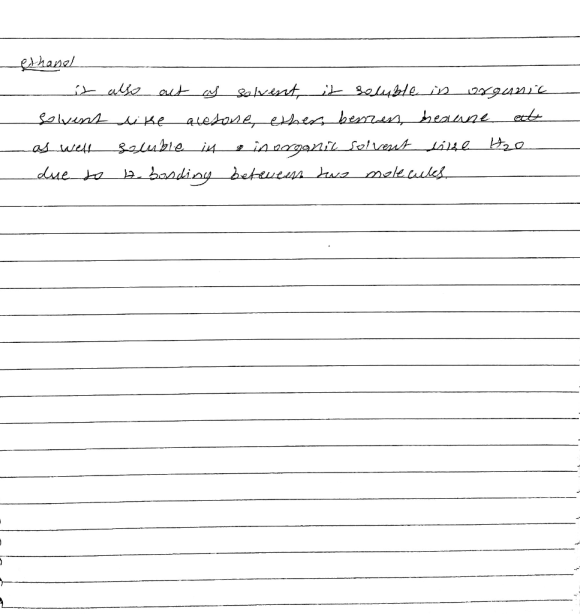 ethanol
it also act as solvent, it soluble in organic
solvent like acetone, ether, benzen, hexane etc
as well soluble in inorganic solvent like H2O
due to H-bonding between two molecules.